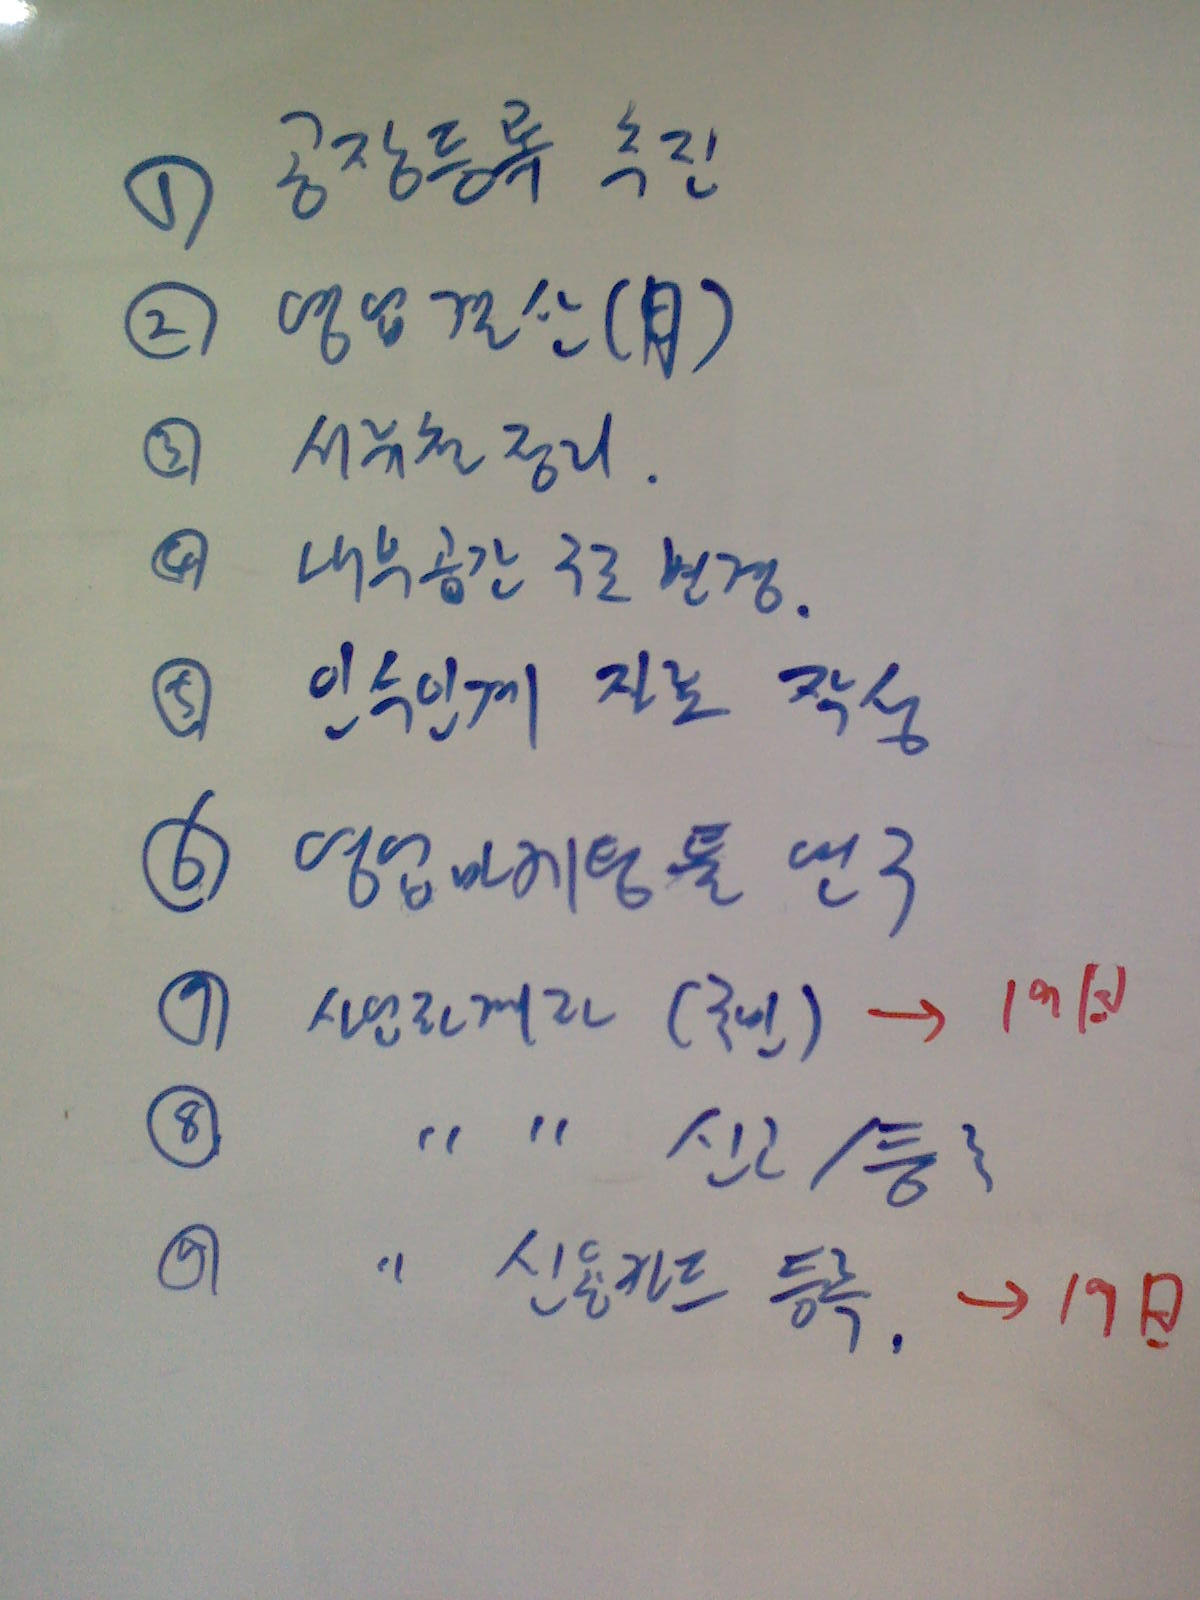 ① 공장등록 추진
② 영업결산(月)
③ 서류철 정리.
④ 내부공간 구조 변경.
⑤ 인수인계 자료 작성
⑥ 영업마케팅툴 연구
⑦ 사업자계좌 (국민) → 19일
⑧ " " 신고/등록
⑨ " 신용카드 등록. → 19日